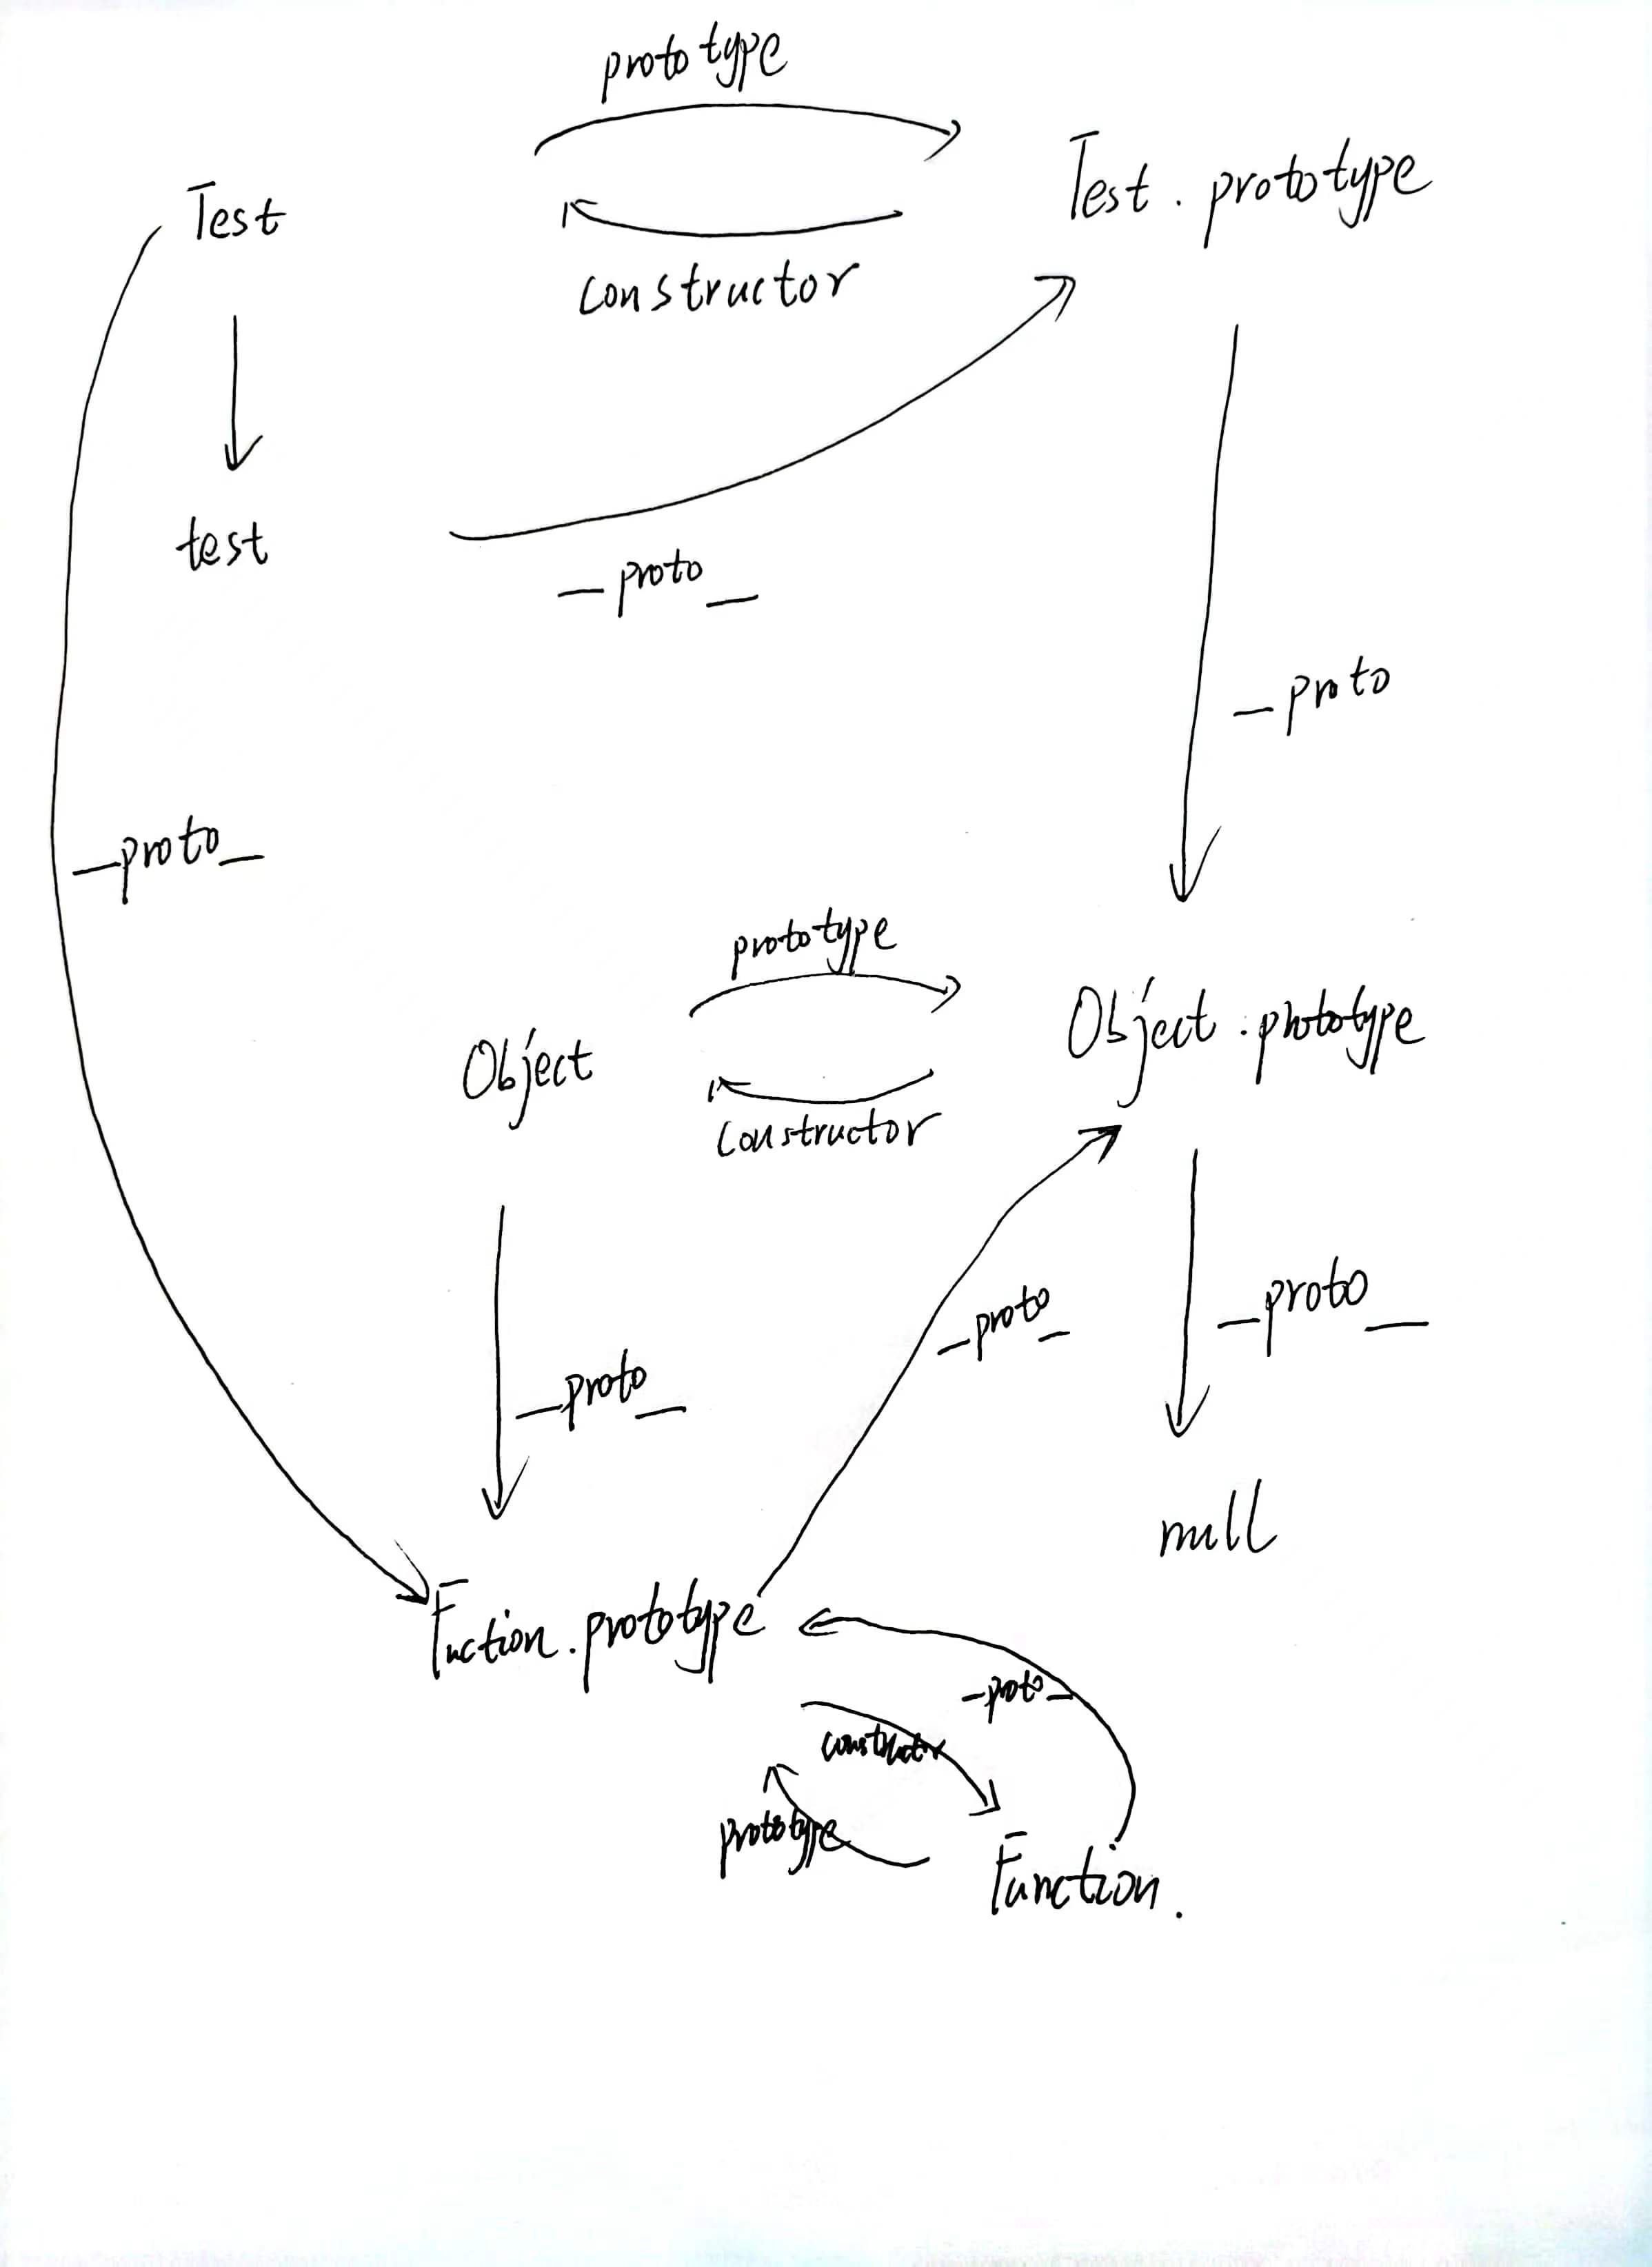 prototype
Test
Test.prototype
constructor
test
_proto_
_proto
_proto_
prototype
Object
Object.prototype
constructor
_proto_
_proto_
_proto_
null
Fuction.prototype
_proto_
constructor
prototype
Function.